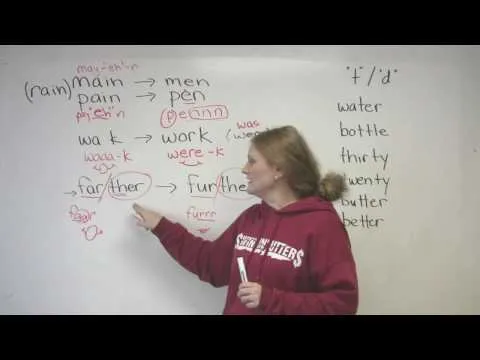 may-"eh"-n
(rain) main → men
pain → pen
pay"eh"n penn
was
walk → work (were
wada-k were-k
→ far/ther → fur/the
faar furrr
"t"/"d"
water
bottle
thirty
twenty
butter
better